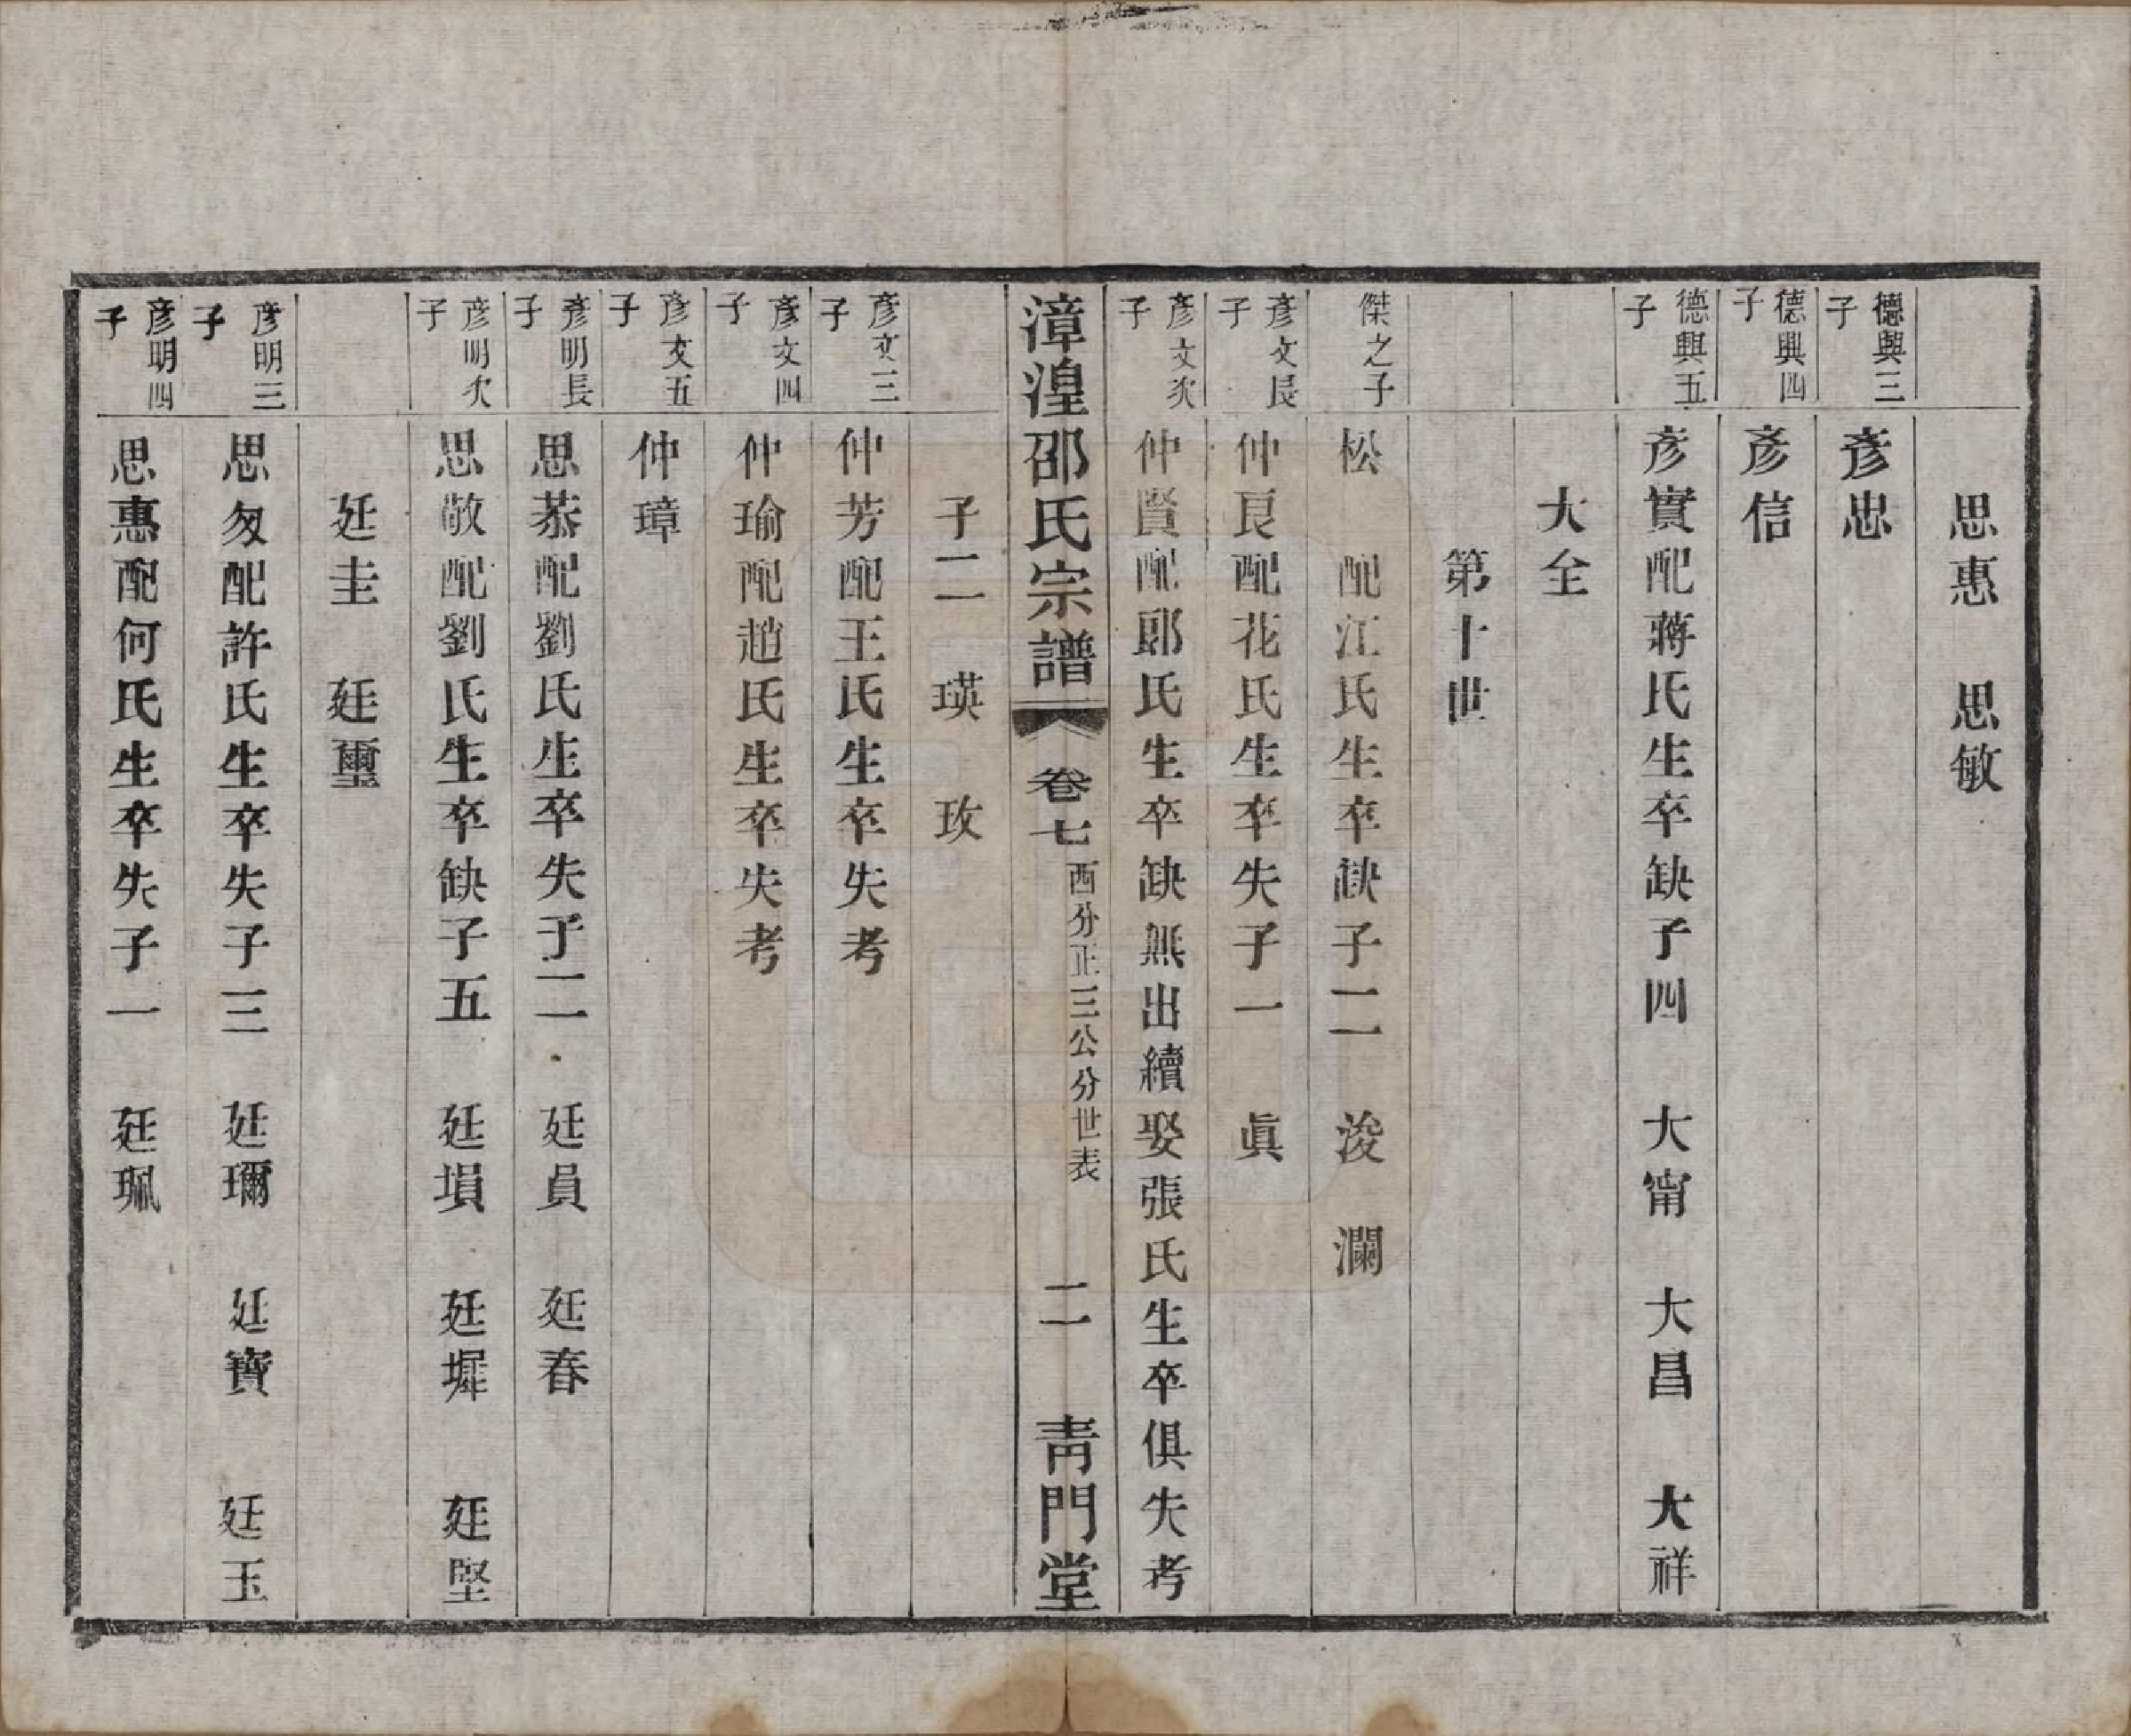 思惠　思敏
德興三子　彥忠
德興四子　彥信
德興五子　彥實配蔣氏生卒缺子四　大甯　大昌　大祥
大全
第十世
傑之子　松　配江氏生卒缺子二　浚　瀾
彥文長子　仲良配花氏生卒失子一　眞
彥文次子　仲賢配郎氏生卒缺無出續娶張氏生卒俱失考
漳湟邵氏宗譜　卷七　西分正三公分世表　二　靑門堂
子二　瑛　玫
彥文三子　仲芳配王氏生卒失考
彥文四子　仲瑜配趙氏生卒失考
彥文五子　仲璋
彥明長子　思恭配劉氏生卒失子二　廷員　廷春
彥明次子　思敬配劉氏生卒缺子五　廷塤　廷墀　廷堅
廷圭　廷璽
彥明三子　思忽配許氏生卒失子三　廷璊　廷寶　廷玉
彥明四子　思惠配何氏生卒失子一　廷珮